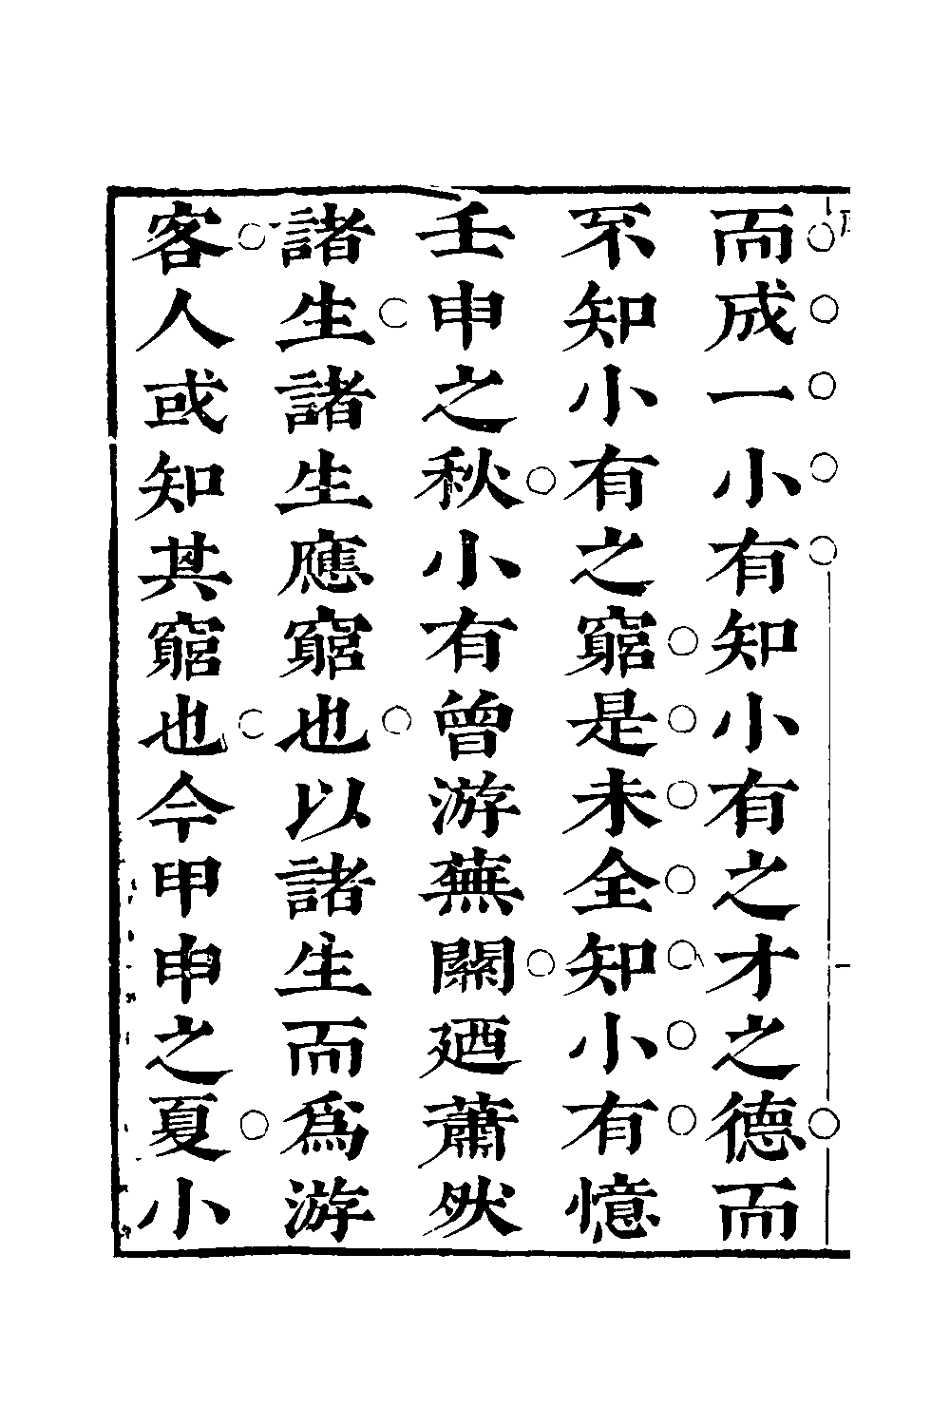 而成一小有知小有之才之德而
不知小有之窮是未全知小有憶
壬申之秋小有曾游蕪關廼蕭然
諸生諸生應窮也以諸生而爲游
客人或知其窮也今甲申之夏小